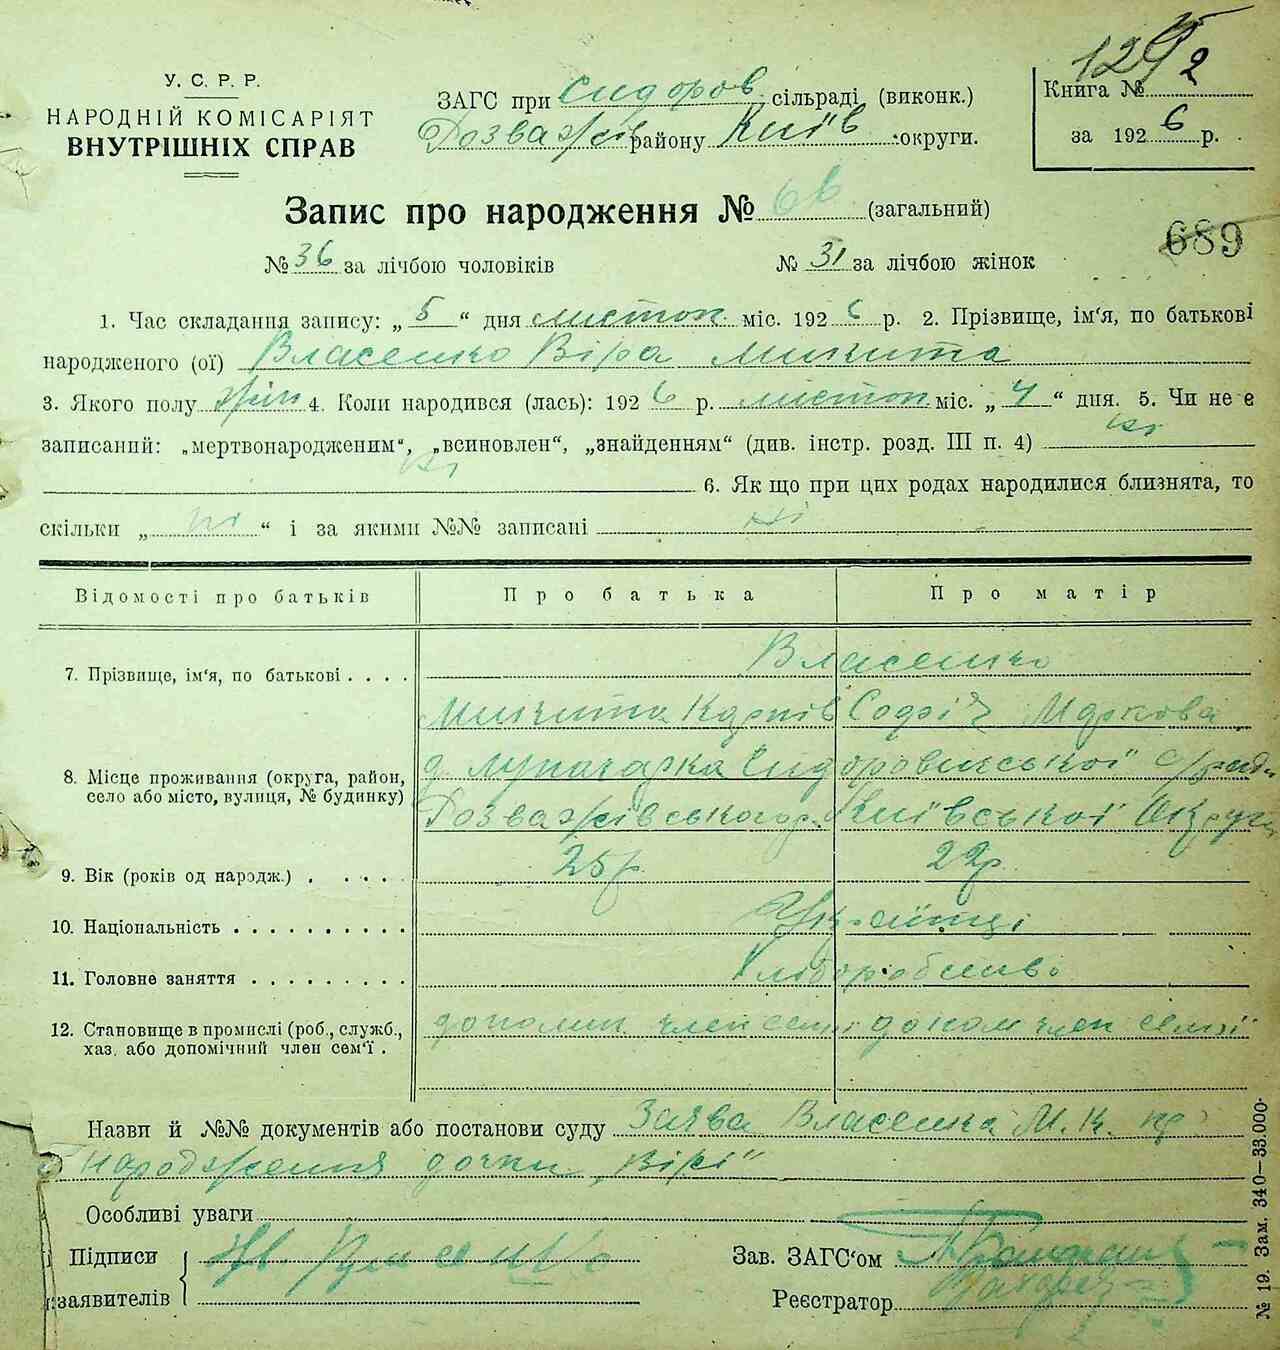 У. С. Р. Р.
НАРОДНІЙ КОМІСАРІЯТ
ВНУТРІШНІХ СПРАВ
ЗАГС при Сидоров. сільраді (виконк.)
Розважів району Київ округи.
Книга №
за 1926 р.
Запис про народження № (загальний)
689
№ 36 за лічбою чоловіків № 31 за лічбою жінок
1. Час складання запису: „5“ дня листоп. міс. 1926 р. 2. Прізвище, ім'я, по батькові
народженого (ої) Власенко Віра Микита
3. Якого полу жін 4. Коли народився (лась): 1926 р. листоп. міс. „4“ дня. 5. Чи не є
записаний: „мертвонародженим“, „всиновлен“, „знайденням“ (див. інстр. розд. III п. 4) ні
ні 6. Як що при цих родах народилися близнята, то
скільки „ні“ і за якими №№ записані ні
Відомості про батьків Про батька Про матір
7. Прізвище, ім'я, по батькові . . . . Власенко
Микита Карпів Софія Маркова
8. Місце проживання (округа, район,
село або місто, вулиця, № будинку)
Сидоровичської с/ради
Розважівського р. Київської Округи
9. Вік (років од народж.) . . . . . 25 р. 22 р.
10. Національність . . . . . . . . . . Українці
11. Головне заняття . . . . . . . . . Хліборобство
12. Становище в промислі (роб., служб.,
хаз. або допомічний член сем'ї .
член семї член семї
Назви й №№ документів або постанови суду Заява Власенка М. К. пр
народження дочки „Вірі“
Особливі уваги
Підписи
заявителів
Зав. ЗАГС'ом
Реєстратор
№ 19. Зам. 340—33.000.